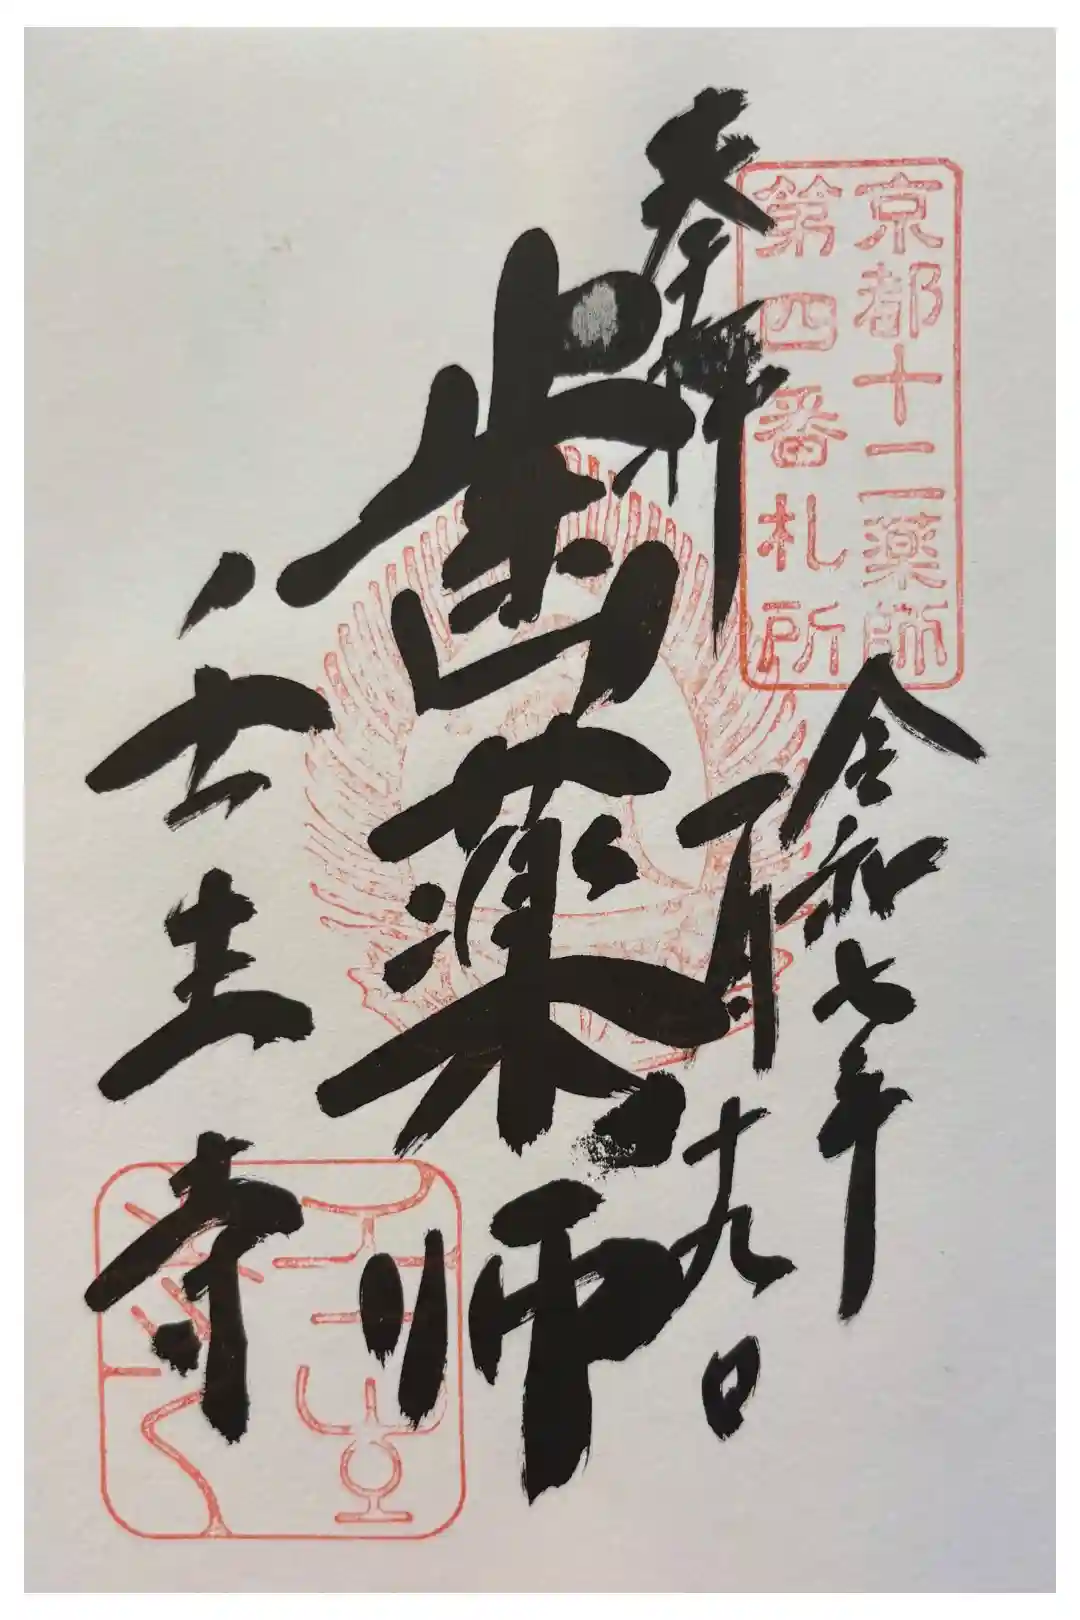 京都十二薬師
第四番札所
奉拝
令和七年
一月十九日
歯薬師
壬生寺